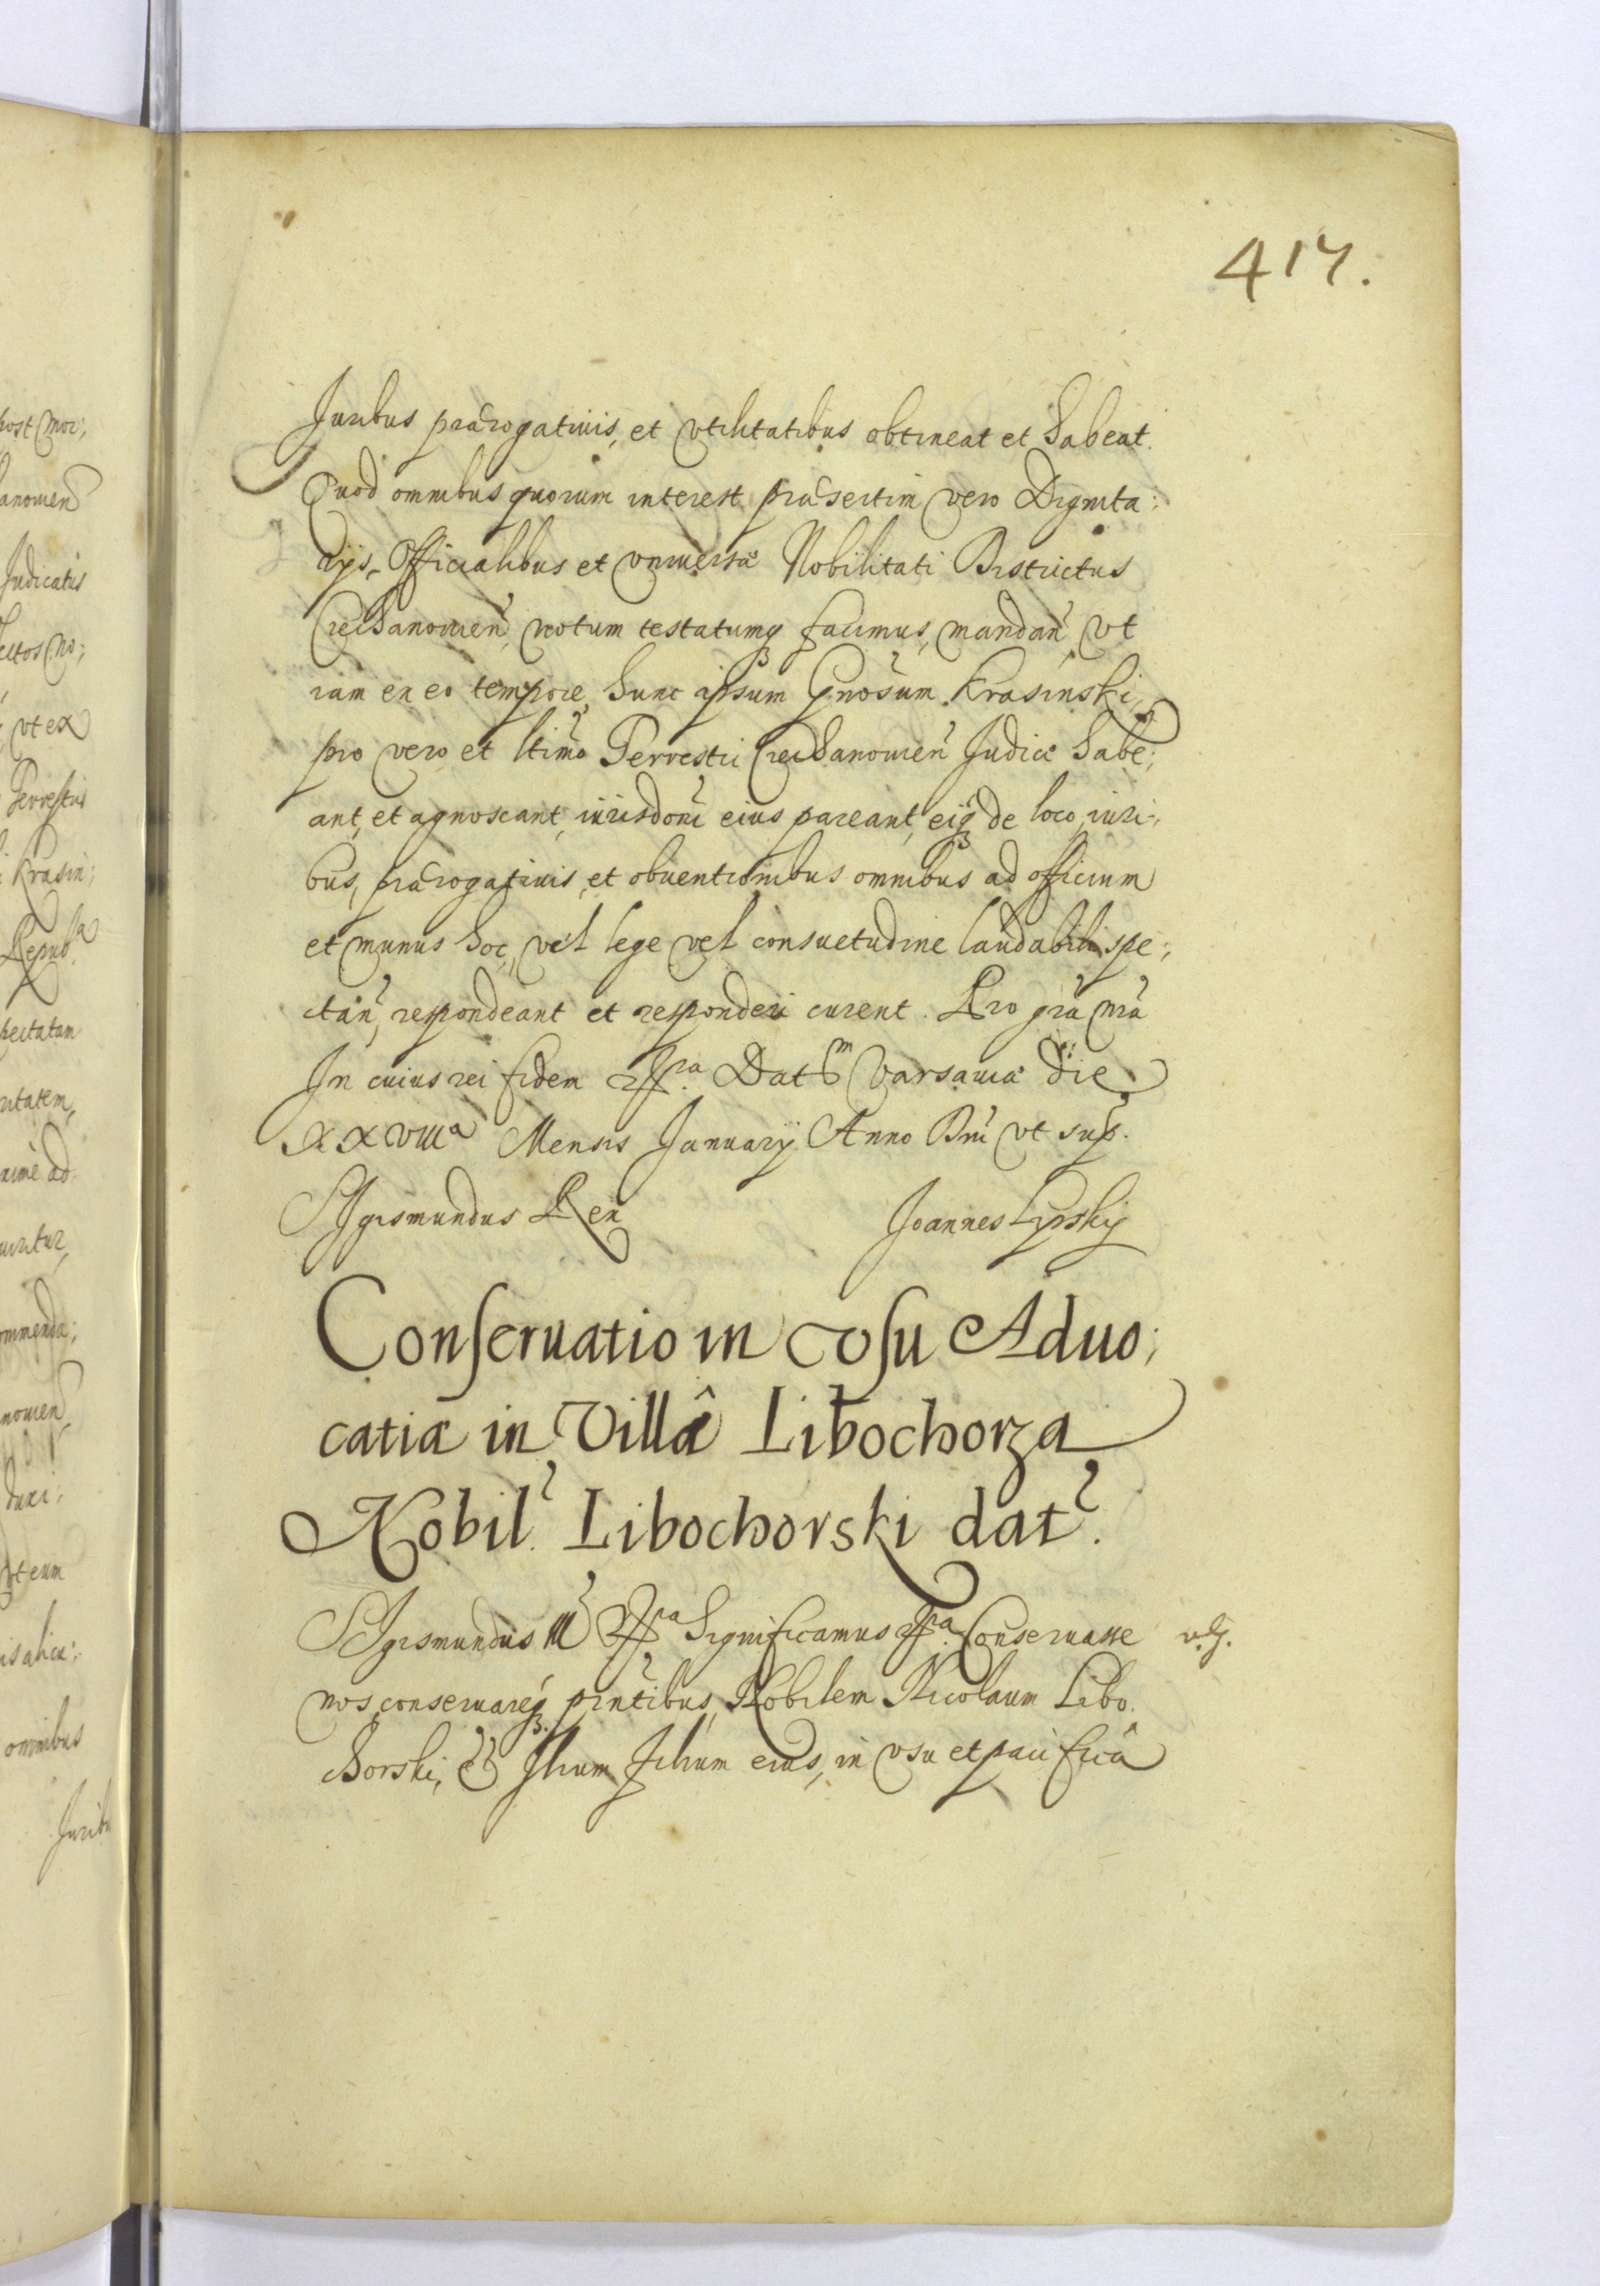 417.
Juribus prærogatiuis, et vtilitatibus obtineat et habeat.
Quod omnibus quorum interest præsertim vero Dignita:
rijs, Officialibus et vniuersæ Nobilitati Districtus
Ciechanouien̄, notum testatumq3 facimus, mandan̄, vt
iam ex eo tempore, hunc ipsum Gnōsum Krasinski,
pro vero et ltīmo Terrestri Ciechanouien̄ Judice habe;
ant, et agnoscant, iurisdonī eius pareant, eiq3 de loco, iuri:
bus, prærogatiuis, et obuentionibus omnibus ad officium
et munus hoc, vel lege vel consuetudine laudabili spe:
ctan̄, respondeant et responderi curent. Pro grā nrā
In cuius rei fidem etc. Datm Varsauiæ die
XXVIIIa Mensis Januarij Anno Dnī vt sup.
Sigismundus Rex Joannes Lipskij
Conseruatio in vsu Aduo;
catiæ in Villâ Libochorza
Nobil. Libochorski dat.
Sigismundus III etc. Significamus etc. Conseruasse
nos, conseruareq3 pn̄tibus, Nobilem Nicolaum Libo.
chorski, et Filium eius, in vsu et pacificâ
post mor;
anouien
Judicatus
vt ex
Terrestris
Krasin;
pectatam
ritatem,
ommenda;
nouien
duxi:
vt eum
omnibus